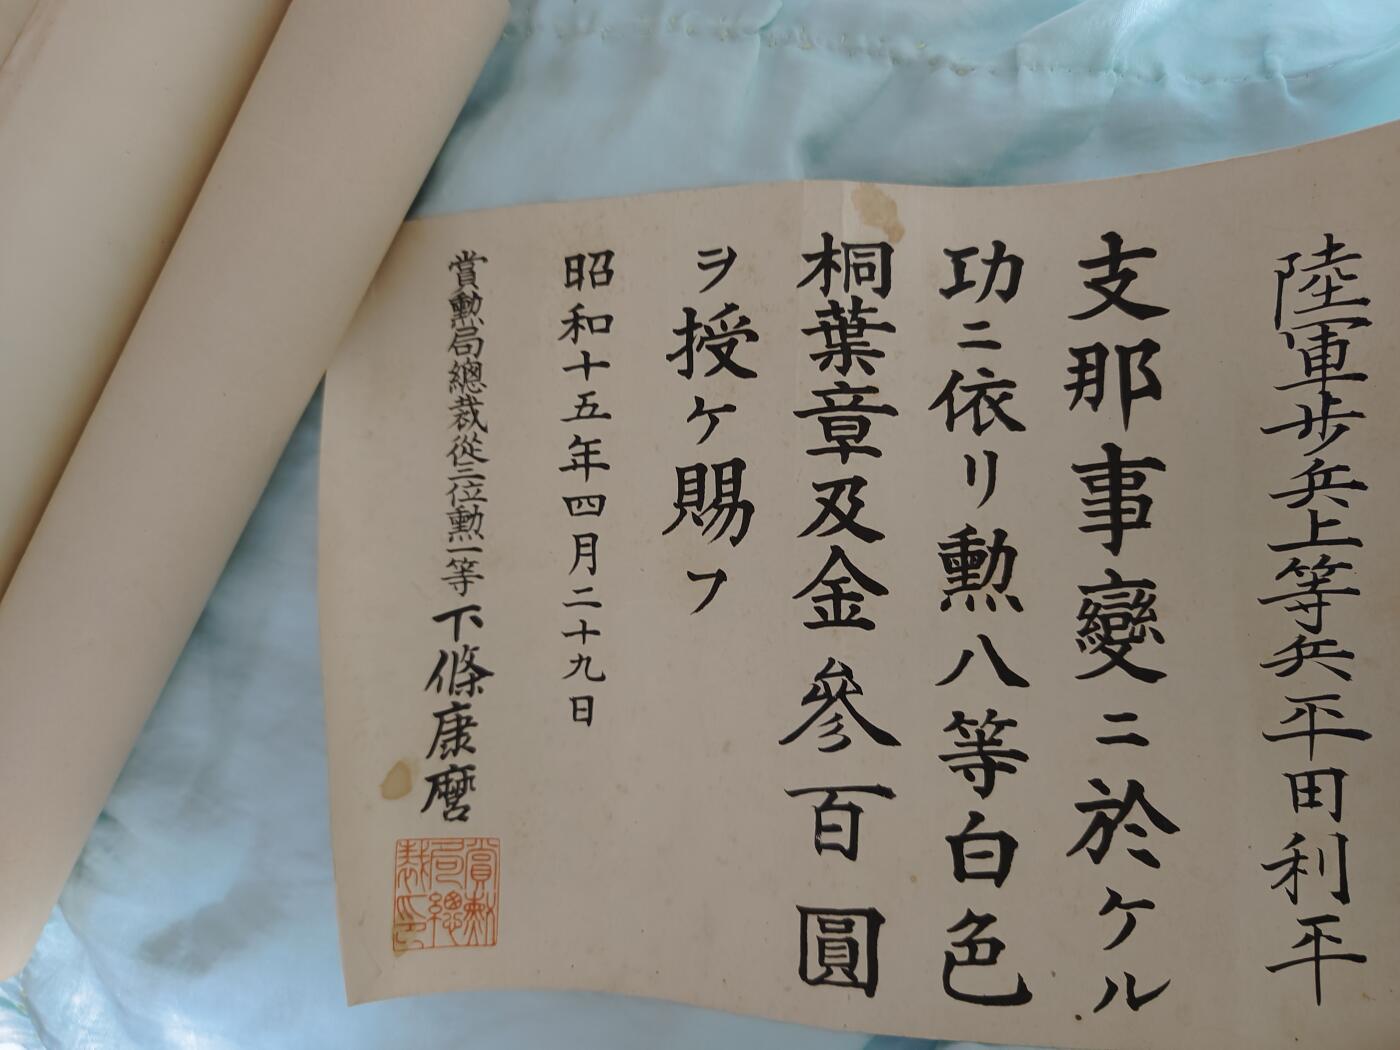 陸軍歩兵上等兵平田利平
支那事變ニ於ケル
功ニ依リ勲八等白色
桐葉章及金參百圓
ヲ授ケ賜フ
昭和十五年四月二十九日
賞勲局總裁從三位勲一等下條康麿
賞勲局總裁之印